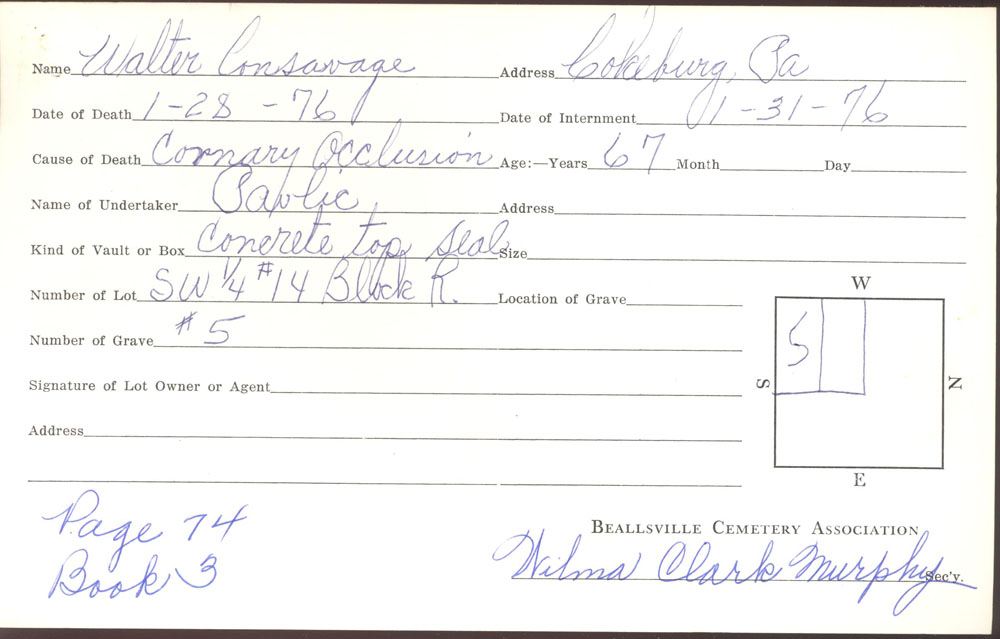 Name Walter Consavage Address Cokeburg, Pa
Date of Death 1-28-76 Date of Internment 1-31-76
Cause of Death Cornary Occlusion Age:—Years 67 Month Day
Name of Undertaker Pavlic Address
Kind of Vault or Box Concrete top seal Size
Number of Lot SW 1/4 #14 Block R. Location of Grave
Number of Grave #5
Signature of Lot Owner or Agent
Address
W
5
S
N
E
Page 74
Book 3
BEALLSVILLE CEMETERY ASSOCIATION
Wilma Clark Murphy Sec'y.